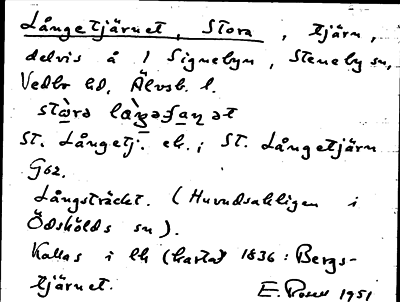 Långetjärnet, Stora, tjärn,
delvis å 1 Signebyn, Steneby sn,
Vedbo hd, Älvsb. l.
St. Långetj. ek.; St. Långetjärn
G62.
Långsträckt. (Huvudsakligen i
Ödskölds sn).
Kallas i lh (karta) 1836: Bergs-
tjärnet. E. 1951